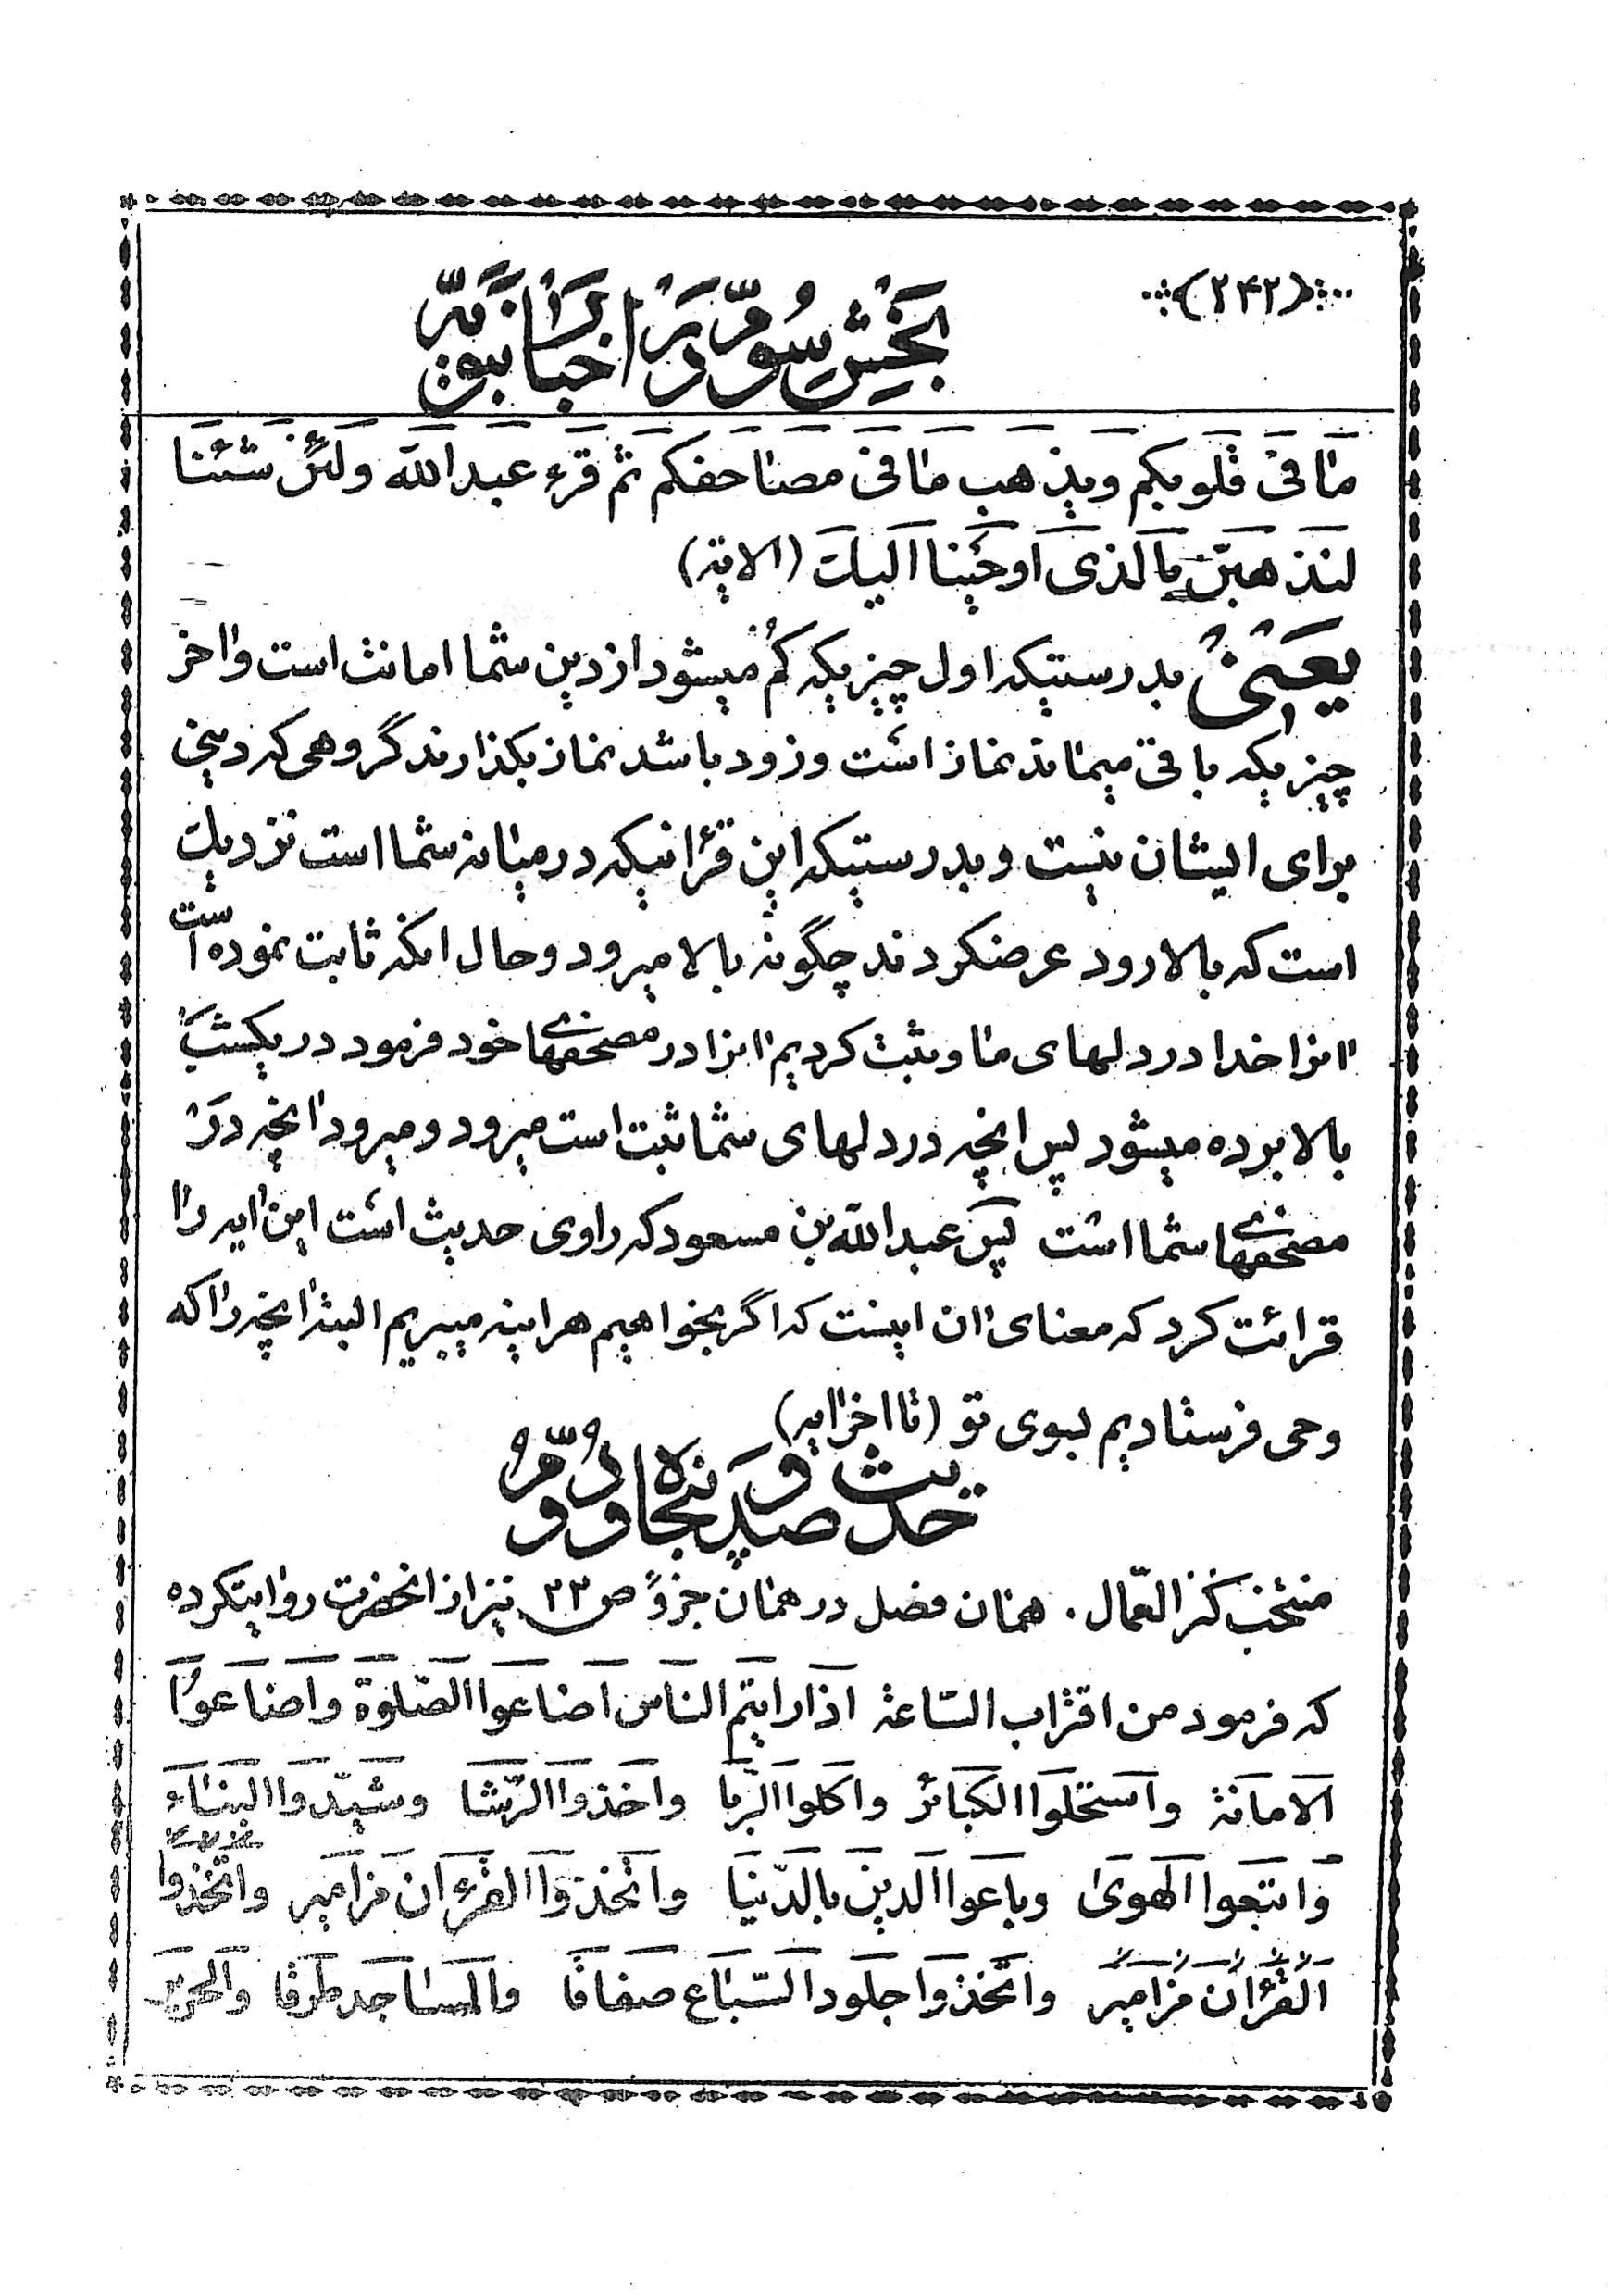 (۲۴۲)
بخش سوم در اخبار نبویه
ما فی قلوبکم ویذهب ما فی مصاحفکم ثم قرء عبد الله ولئن شئنا
لنذهبن بالذی اوحینا الیک (الایة)
یعنی بدرستیکه اول چیزیکه کم میشود از دین شما امانت است واخر
چیزیکه باقی میماند نماز است وزود باشد نماز بکذارند گروهی که دینی
برای ایشان نیست وبدرستیکه این قرانیکه در میانه شما است نزدیک
است که بالا رود عرضکردند چگونه بالا میرود وحال انکه ثابت نموده است
انرا خدا در دلهای ما وثبت کردیم انرا در مصحفهای خود فرمود در یکشب
بالا برده میشود پس انچه در دلهای شما ثبت است میرود ومیرود انچه در
مصحفهای شما است پس عبد الله بن مسعود که راوی حدیث است این ایه را
قرائت کرد که معنای ان اینست که اگر بخواهیم هراینه میبریم البته انچه را که
وحی فرستادیم بسوی تو (تا اخر ایه)
حدیث صد و پنجاه و دوم
منتخب کنز العمال . همان فصل در همان جزو ص ۲۳ نیز از انحضرت روایتکرده
که فرمود من اقتراب الساعة اذا رایتم الناس اضاعوا الصلوة واضاعوا
الامانة واستحلوا الکبائر واکلوا الربا واخذوا الرشا وشیدوا البناء
واتبعوا الهوی وباعوا الدین بالدنیا واتخذوا القرءان مزامیر واتخذوا
القرءان مزامیر واتخذوا جلود السباع صفافا والمساجد طرقا والحریر